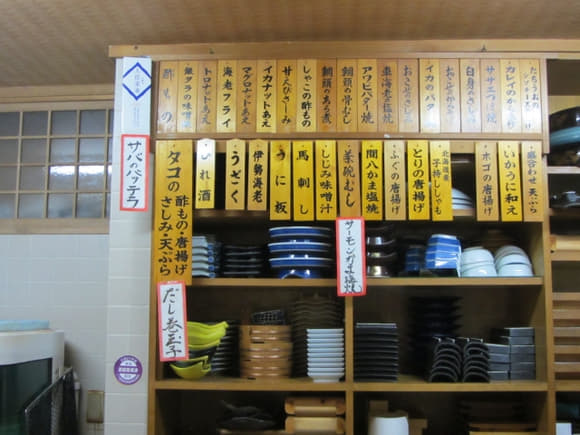 たちうおの
カレイのから揚
サザエつぼ焼
白身のさしみ
おこぜから揚
イカのバター焼
おこぜさしみ
車海老の塩焼
アワビバター焼
鯛頭の骨むし
鯛頭のあら煮
しゃこの酢もの
甘えびさしみ
イカナットあえ
マグロナットあえ
海老フライ
トロナットあえ
銀ダラの味噌
酢もの
盛合わせ天ぷら
いかうに和え
ホゴの唐揚
北海道産
子持ししゃも
とりの唐揚げ
ふぐの唐揚げ
間八かま塩焼
茶碗むし
しじみ味噌汁
馬刺し
うに板
伊勢海老
うざく
ひれ酒
タコの
酢もの・唐揚げ
さしみ・天ぷら
サバのバッテラ
サーモンかま塩焼
だし巻玉子